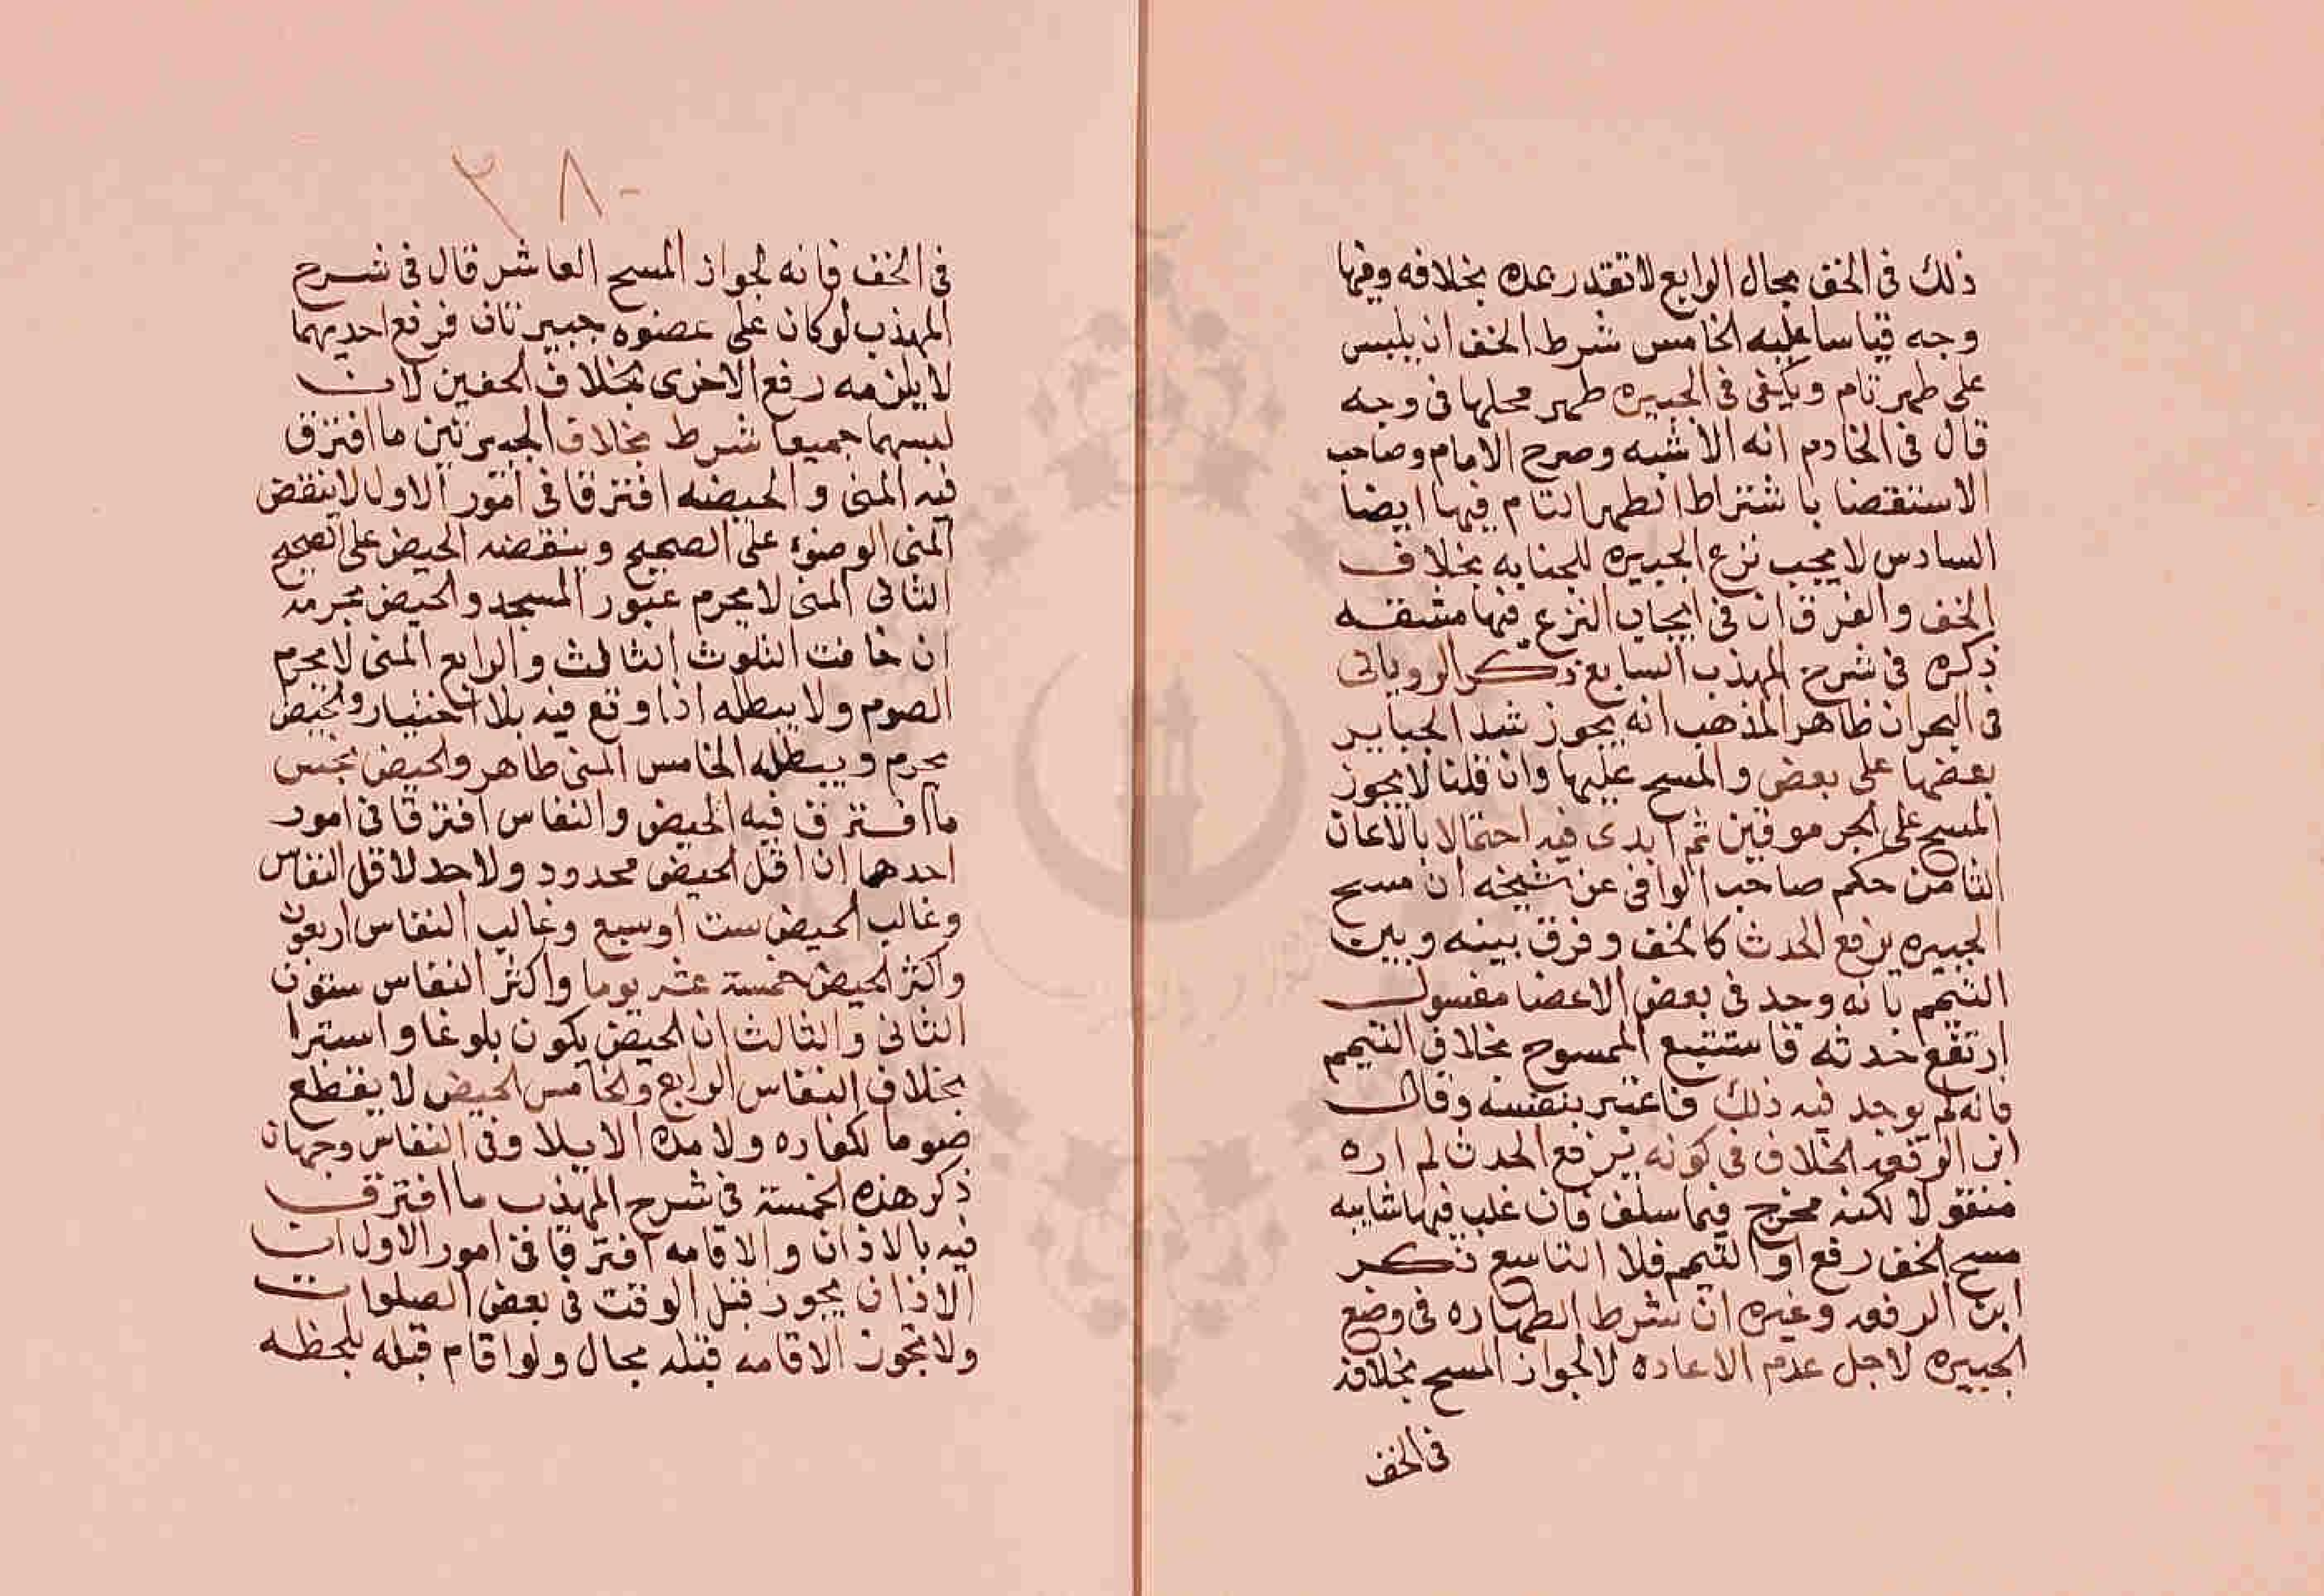 ذلك في الخف بحال الرابع لا تقدر عده بخلافه وفيها
وجه قياسا عليه الخامس شرط الخف ان يلبس
على طهر تام ويكفى في الجبيره طهر محلها في وجه
قال في الخادم انه الاشبه وصرح الامام وصاحب
الاستقصا باشتراط الطهر التام فيها ايضا
السادس لا يجب نزع الجبيره للجنابه بخلاف
الخف والفرق ان في ايجاب النزع فيها مشقه
ذكره في شرح المهذب السابع ذكر الروياني
في البحر ان ظاهر المذهب انه يجوز شد الجباير
بعضها على بعض والمسح عليها وان قلنا لا يجوز
المسح على الجرموقين ثم ابدى فيه احتمالا بالاعان
الثامن حكم صاحب الوافي عن شيخه ان مسح
الجبيره يرفع الحدث كالخف وفرق بينه وبين
التيمم بانه وجد في بعض الاعضا مغسول
ارتفع حدثه فاستتبع الممسوح بخلاف التيمم
فانه لم يوجد فيه ذلك فاعتبر بنفسه وقال
ابن الرفعه الخلاف في كونه يرفع الحدث لم اره
منقولا لكنه مخرج فيما سلف فان غلب فيها شايبه
مسح الخف رفع او التيمم فلا التاسع ذكر
ابن الرفعه وغيره ان شرط الطهاره في وضع
الجبيره لاجل عدم الاعاده لا لجواز المسح بخلافه
في الخف
٣٨٠
في الخف فانه لجواز المسح العاشر قال في شرح
المهذب لو كان على عضوه جبيرتان فرفع احديهما
لا يلزمه رفع الاخرى بخلاف الخفين لان
لبسهما جميعا شرط بخلاف الجبيرتين ما افترق
فيه المنى والحيضه افترقا في امور الاول لا ينقض
المنى الوضوء على الصحيح وينقضه الحيض على الصحيح
الثاني المنى لا يحرم عبور المسجد والحيض يحرمه
ان خافت التلوث الثالث والرابع المنى لا يحرم
الصوم ولا يبطله اذا وقع فيه بلا اختيار والحيض
يحرم ويبطله الخامس المنى طاهر والحيض نجس
ما افترق فيه الحيض والنفاس افترقا في امور
احدها ان اقل الحيض محدود ولا حد لاقل النفاس
وغالب الحيض ست او سبع وغالب النفاس اربعون
واكثر الحيض خمسة عشر يوما واكثر النفاس ستون
الثاني والثالث ان الحيض يكون بلوغا واستبرا
بخلاف النفاس الرابع والخامس الحيض لا يقطع
صوم الكفاره ولا مده الايلا وفي النفاس وجهان
ذكر هذه الخمسة في شرح المهذب ما افترق
فيه بالاذان والاقامه افترقا في امور الاول ان
الاذان يجوز قبل الوقت في بعض الصلوات
ولا تجوز الاقامه قبله بحال ولو اقام قبله بلحظه